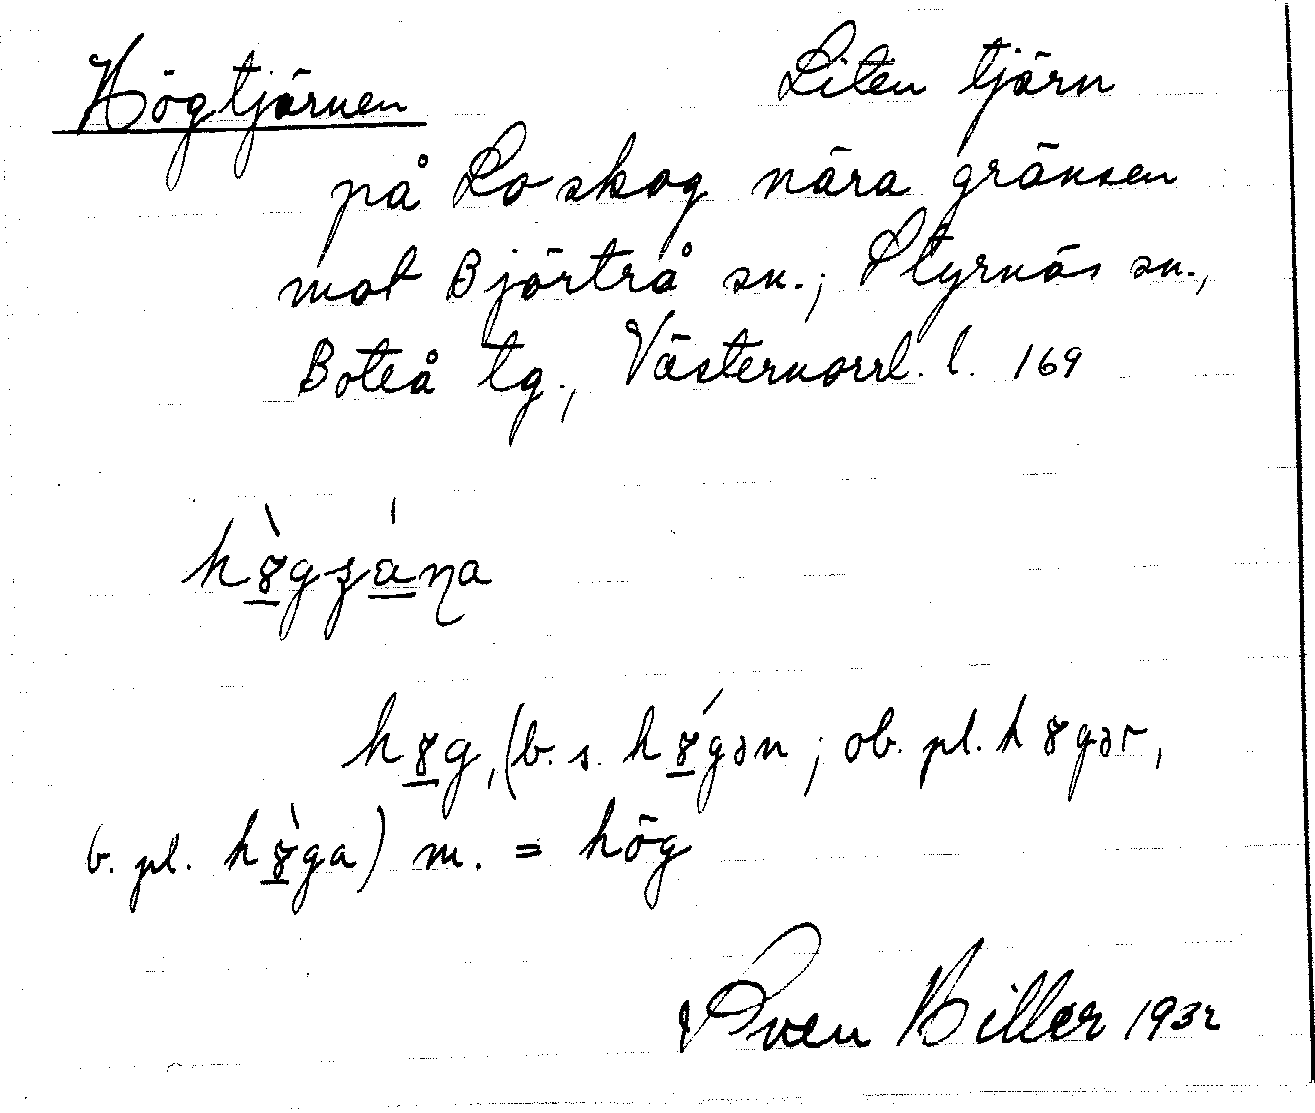 Högtjärnen Liten tjärn
på Lo skog nära gränsen
mot Bjärtrå sn.; Styrnäs sn.,
Boteå tg., Västernorrl. l. 169
hö̀gʒána
hög, (b. s. hö́gən; ob. pl. högər,
b. pl. hö̀ga) m. = hög
Sven Hiller 1932